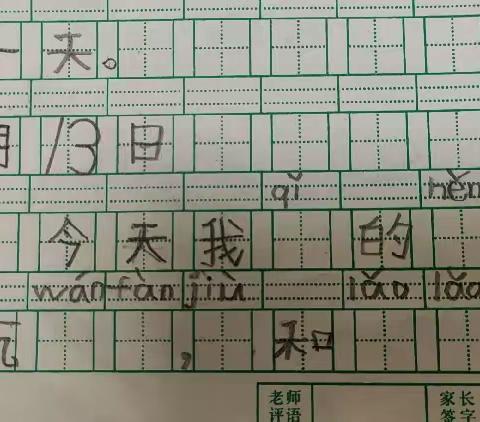 一天。
月13日
qǐ hěn
今天我 的
wánfàn jiù lǎo lǎo
，和
老师 家长
评语 签字